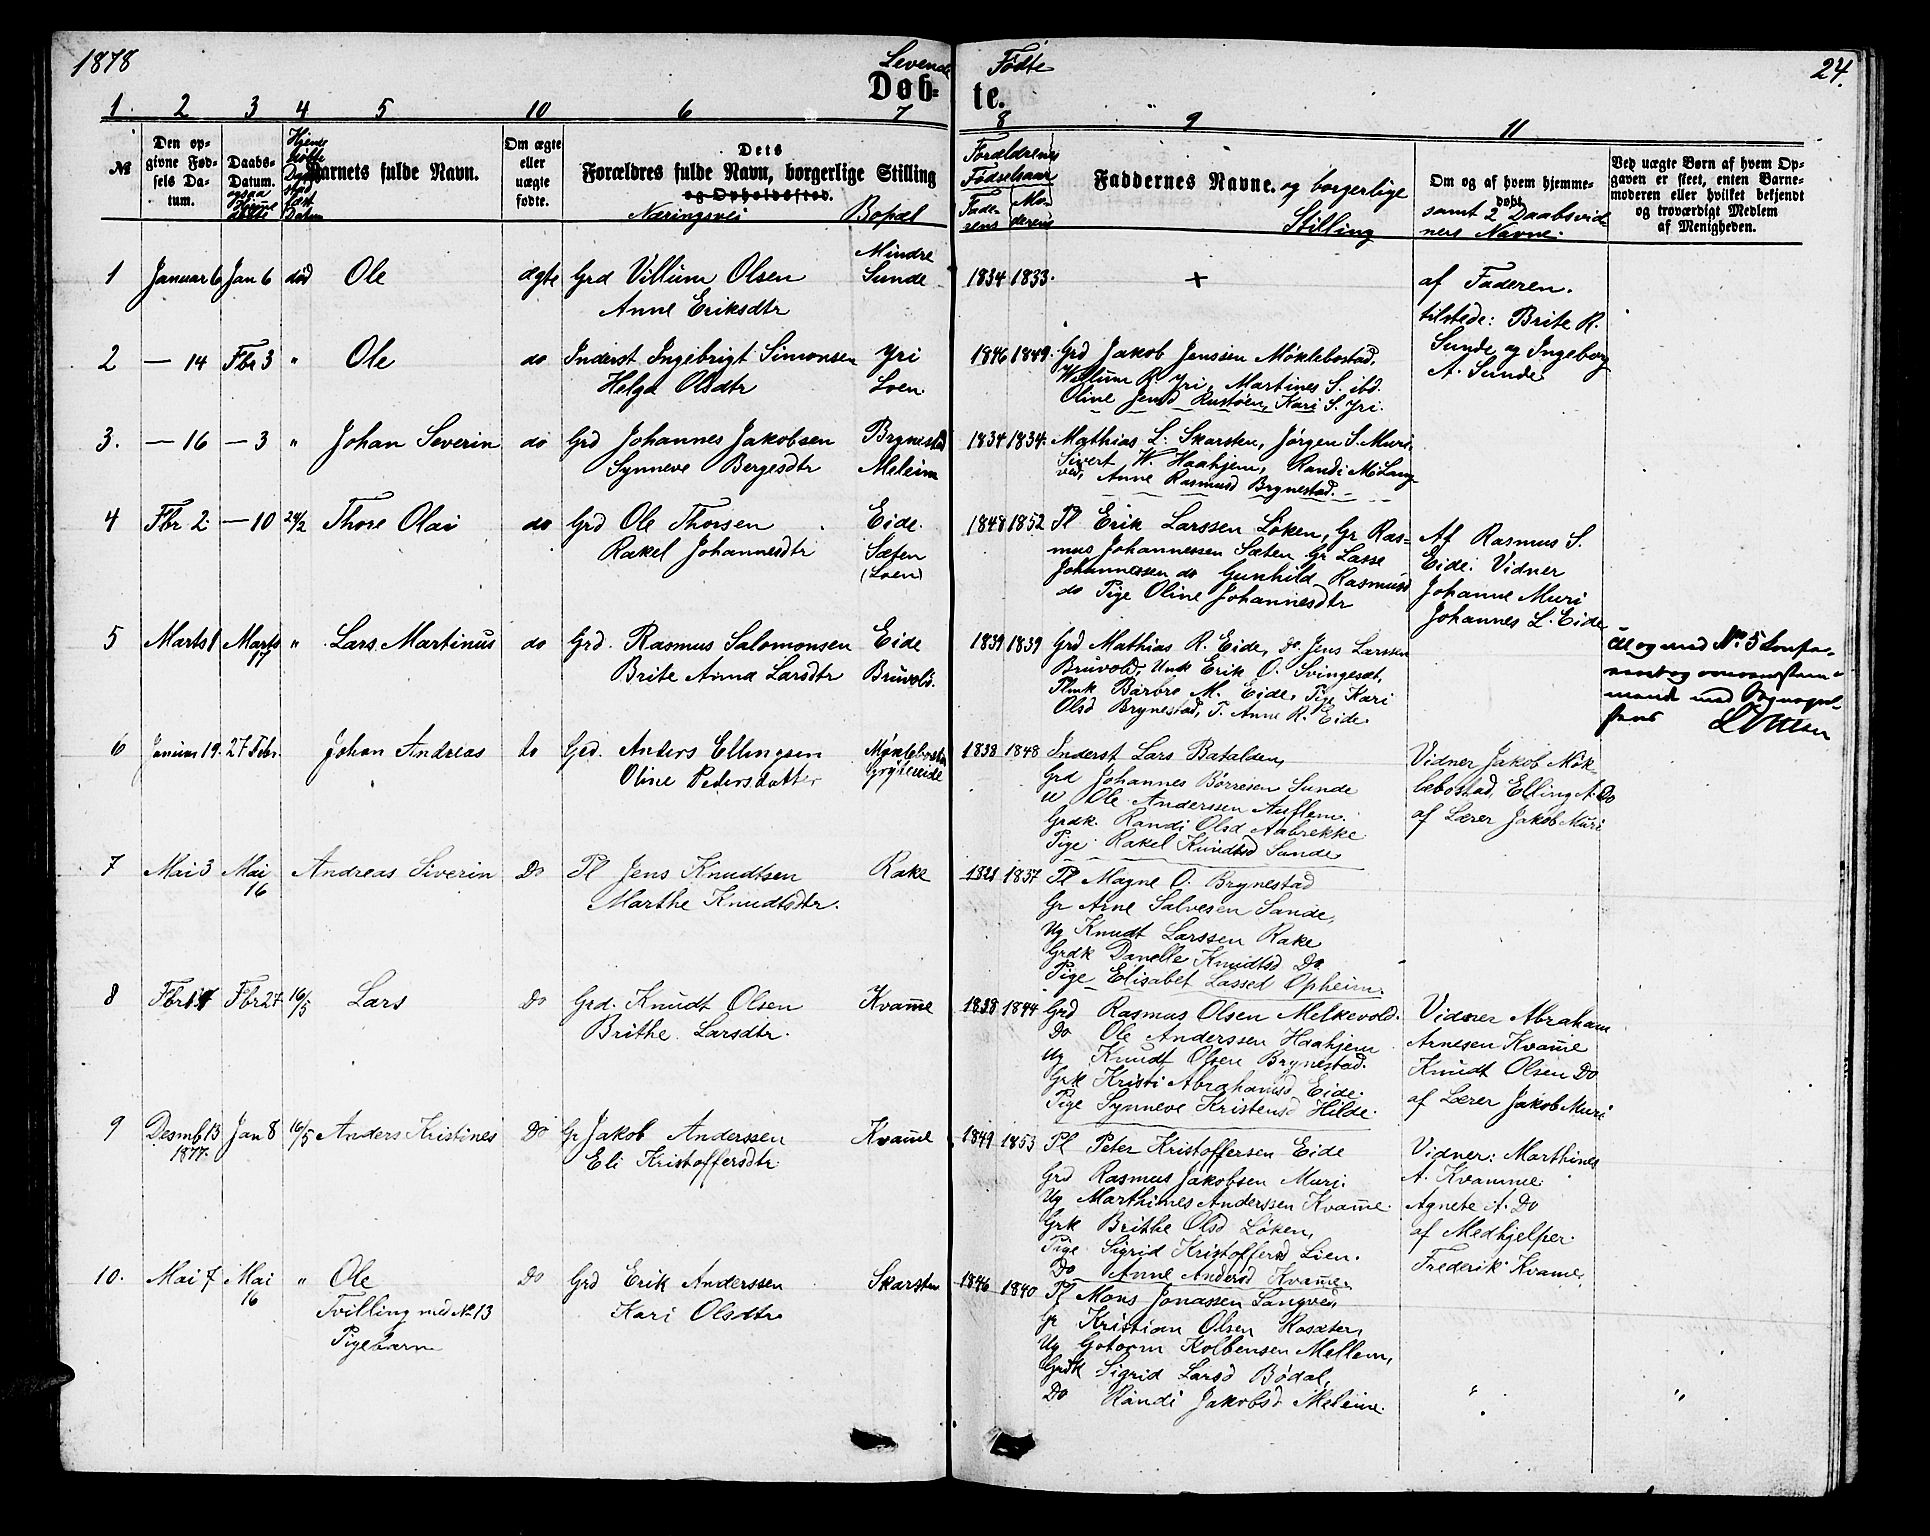 1878 Levende Fødte 24.
Døb- te.
1. 2 3 4 5 10 6 7 8 9 11
№ Den opgivne Fødsels Datum. Daabs-Datum. Barnets fulde Navn. Om ægte eller uægte fødte. Dets Forældres fulde Navn, borgerlige Stilling og Opholdssted. Næringsvei Bopæl Forældrenes Fødselsaar Faderens Moderens Faddernes Navne. og borgerlige Stilling Om og af hvem hjemmedøbt samt 2 Daabsvidners Navne. Ved uægte Børn af hvem Opgaven er skeet, enten Barnemoderen eller hvilket bekjendt og troværdigt Medlem af Menigheden.
1 Januar 6 Jan 6 død Ole ægte Grd Villum Olsen Mindre Sunde 1834 1833. + af Faderen.
Anne Eriksdtr tilstede: Brite R.
Sunde og Ingeborg
A. Sunde
2 — 14 Fbr 3 " Ole do Inderst Ingebrigt Simonsen Yri 1846 1849. Grd Jakob Jenssen Møklebostad,
Helga Olsdtr Loen. Willum R. Yri, Martines S. ibd.
Oline Jensd Rustøen, Kari S. Yri.
3. — 16 — 3 " Johan Severin do Grd Johannes Jakobsen Brynestad 1834 1834. Mathias L. Skarsten, Jørgen S. Muri,
Synneve Bergesdtr Meleim Sivert W. Haahjem, Randi M. Lang
vei, Anne Rasmusd Brynestad.
4 Fbr 2. — 10 24/2 Thore Olai do Grd Ole Thorsen Eide. 1848 1852 Pl Erik Larssen Løken, Gr Ras= Af Rasmus S.
Rakel Johannesdtr Sæten mus Johannessen Sæten Gr Lasse Eide. Vidner
(Loen) Johannessen do Gunhild Rasmusd Johanne Muri
do Pige Oline Johannesdtr Johannes L. Eide
5 Marts 1 Marts 17 " Lars Martinus do Grd. Rasmus Salomonsen Eide 1839 1839 Grd Mathias R. Eide, do. Jens Larssen Til og med No 5
Brite Anna Larsdtr Bruvold. Bruvold, Unk Erik O. Svingeset,
Plmk Barbro M. Eide, Pige Kari
Olsd Brynestad, P. Anne R. Eide
6 Januar 19. 27 Febr. Johan Andreas do Grd. Anders Ellingsen Møklebostad 1838 1848 Inderst Lars Batalden, Vidner Jakob Møk-
Oline Pedersdatter Grytereide Grd Johannes Børresen Sunde lebostad, Elling A. Do
U Ole Anderssen Auflem. af Lærer Jakob Muri
Grdk. Randi Olsd Aabrekke
Pige Rakel Knudtsd Sunde
7 Mai 3 Mai 16 Andreas Siverin Do Pl Jens Knudtsen Rake 1821 1837 Pl Magne O. Brynestad
Marthe Knudtsdtr. Gr Arne Salvesen Sande,
Ug Knudt Larssen Rake
Grdk Danelle Knudtsd Do.
Pige Elisabet Lassed Opheim.
8 Fbr 17 Fbr 27 16/5 Lars Do Grd. Knudt Olsen Kvam̄e 1838 1844 Grd Rasmus Olsen Melkevold. Vidner Abraham
Brithe Larsdtr. Do Ole Anderssen Haahjem Arnesen Kvam̄e
Ug Knudt Olsen Brynestad. Knudt Olsen Do
Grk Kristi Abrahamsd Eide. af Lærer Jakob Muri
Pige Synneve Kristensd Hilde.
9 Desmb 13 1877. Jan 8 16/5 Anders Kristines Do Gr Jakob Anderssen Kvam̄e 1849 1853 Pl Peter Kristoffersen Eide Vidner: Marthines
Eli Kristoffersdtr. Grd Rasmus Jakobsen Muri. A. Kvamme.
Ug Marthines Anderssen Kvam̄e. Agnete A. Do
Grk Brithe Olsd Løken, af Medhjelper.
Pige Sigrid Kristoffersd Lien. Frederik Kvam̄e.
Do Anne Andersd Kvam̄e.
10. Mai 7 Mai 16 " Ole Do Grd Erik Anderssen Skarsten 1846 1840 Pl Mons Jonassen Langvei,
Tvilling med No 13 Kari Olsdtr gr Kristian Olsen Rosæter,
Pigebarn Ug Gotorm Kolbensen Mellem,
Grdk Sigrid Larsd Bødal,
Do Randi Jakobsd Meleim.